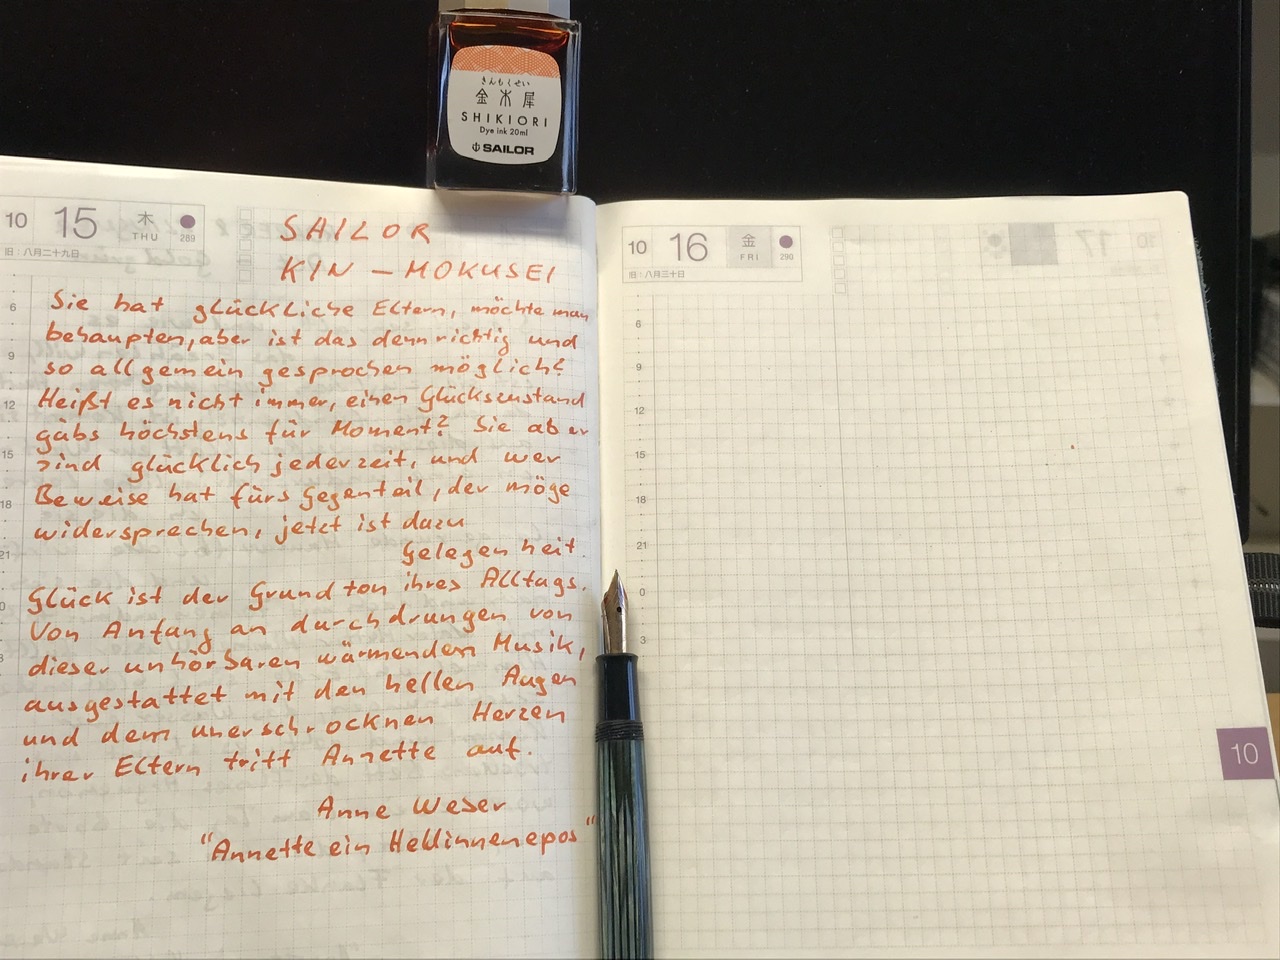 きんもくせい
金木犀
SHIKIORI
Dye ink 20ml
SAILOR
10 15 木 THU 289
旧：八月二十九日
SAILOR
KIN – MOKUSEI
Sie hat glückliche Eltern, möchte man
behaupten, aber ist das denn richtig und
so allgemein gesprochen möglich?
Heißt es nicht immer, einen Glückszustand
gäbs höchstens für Moment? Sie aber
sind glücklich jederzeit, und wer
Beweise hat fürs Gegenteil, der möge
widersprechen, jetzt ist dazu
Gelegenheit.
Glück ist der Grundton ihres Alltags.
Von Anfang an durchdrungen von
dieser unhörbaren wärmenden Musik,
ausgestattet mit den hellen Augen
und dem unerschrocknen Herzen
ihrer Eltern tritt Annette auf.
Anne Weber
"Annette ein Heldinnenepos"
6
9
12
15
18
21
0
3
10 16 金 FRI 290
旧：八月三十日
6
9
12
15
18
21
0
3
10